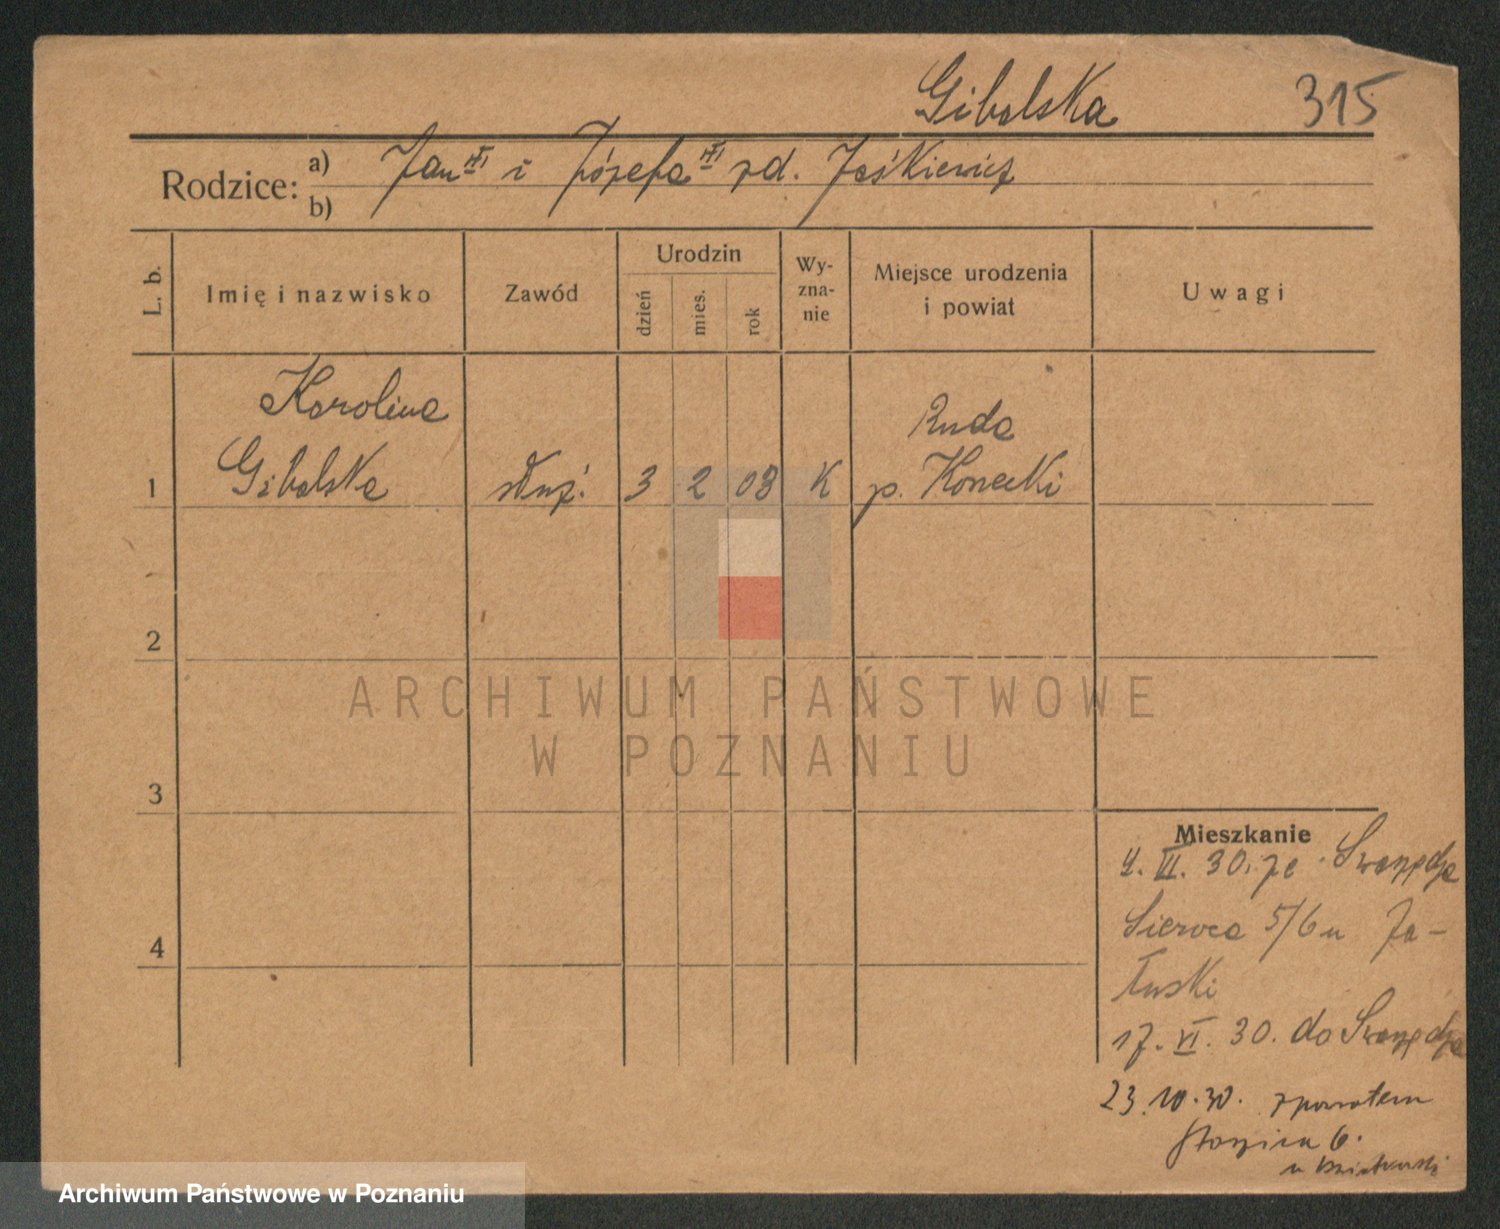 Gibalska 315
Rodzice: a) Jan i Józefa zd. Jaśkiewicz
b)
L. b. Imię i nazwisko Zawód Urodzin dzień mies. rok Wy-zna-nie Miejsce urodzenia i powiat Uwagi
Karolina Ruda
1 Gibalska służ. 3 2 08 K p. Konecki
2
ARCHIWUM PAŃSTWOWE
W POZNANIU
3
Mieszkanie
4. III. 30. ze Swarzędza
Sieroca 5/6 u Za-
4
łuski
17. VI. 30. do Swarzędza
23.10.30. zpowrotem
6.
u
Archiwum Państwowe w Poznaniu